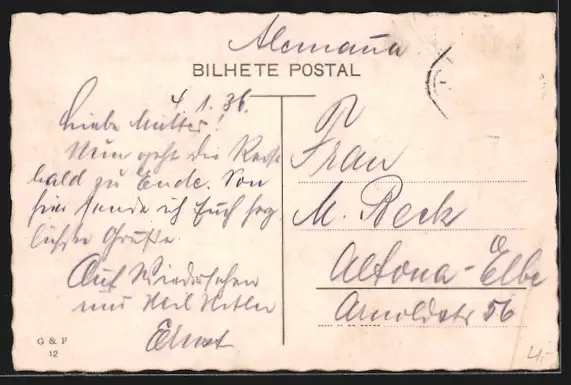 Alemanha
BILHETE POSTAL
4.1.36.
Liebe Mutter!
Nun geht die Reise
bald zu Ende. Von
hier sende ich Euch herz-
lichste Grüße
Auf Wiedersehen
und Heil Hitler
Ernst
G & F
12
Frau
M. Beck
Altona-Elbe
Arnoldstr 56